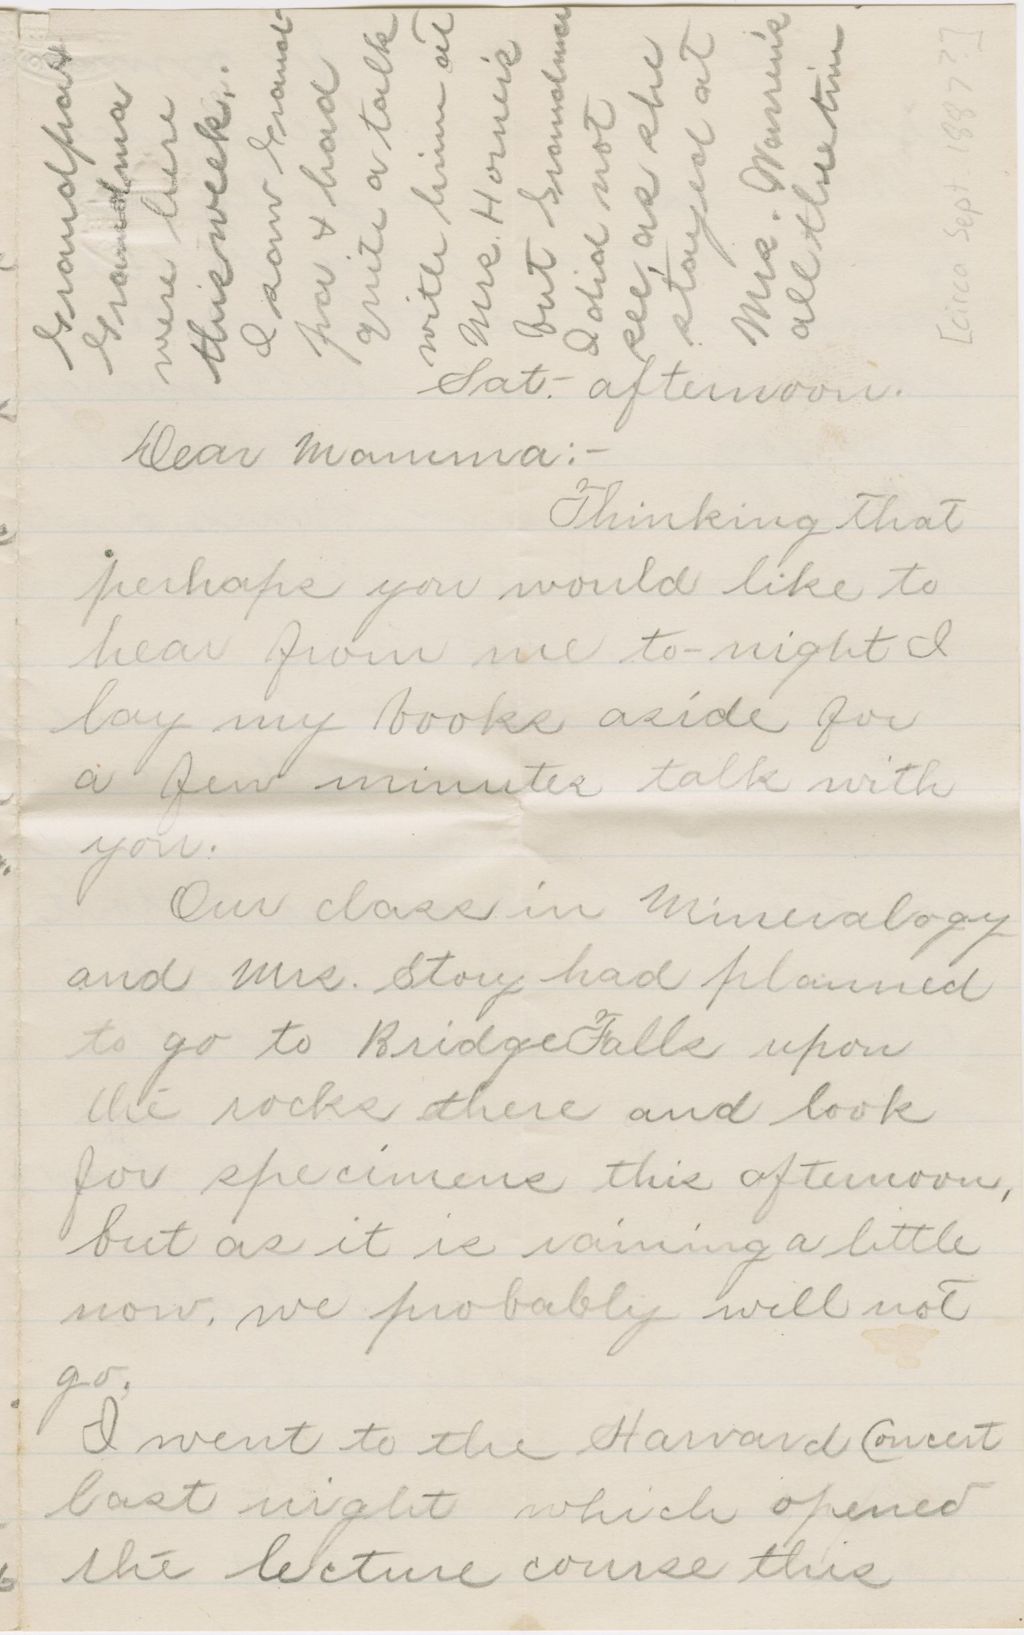 Grandpa &
Grandma
were here
this week.
I saw Grand-
pa & had
quite a talk
with him at
Mrs. Horne's
but Grandma
I did not
see, as she
stayed at
Mrs. Warren's
all the time
[circa Sept. 1887?]
Sat.- afternoon.
Dear Mamma:-
Thinking that
perhaps you would like to
hear from me to-night I
lay my books aside for
a few minutes talk with
you.
Our class in Mineralogy
and Mrs. Story had planned
to go to Bridge Falls upon
the rocks there and look
for specimens this afternoon,
but as it is raining a little
now, we probably will not
go.
I went to the Harvard Concert
last night which opened
the lecture course this